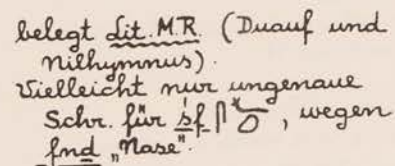 belegt Lit. M.R. (Duauf und
Nilhymnus).
Vielleicht nur ungenaue
Schr. für śf, wegen
fnd „Nase".